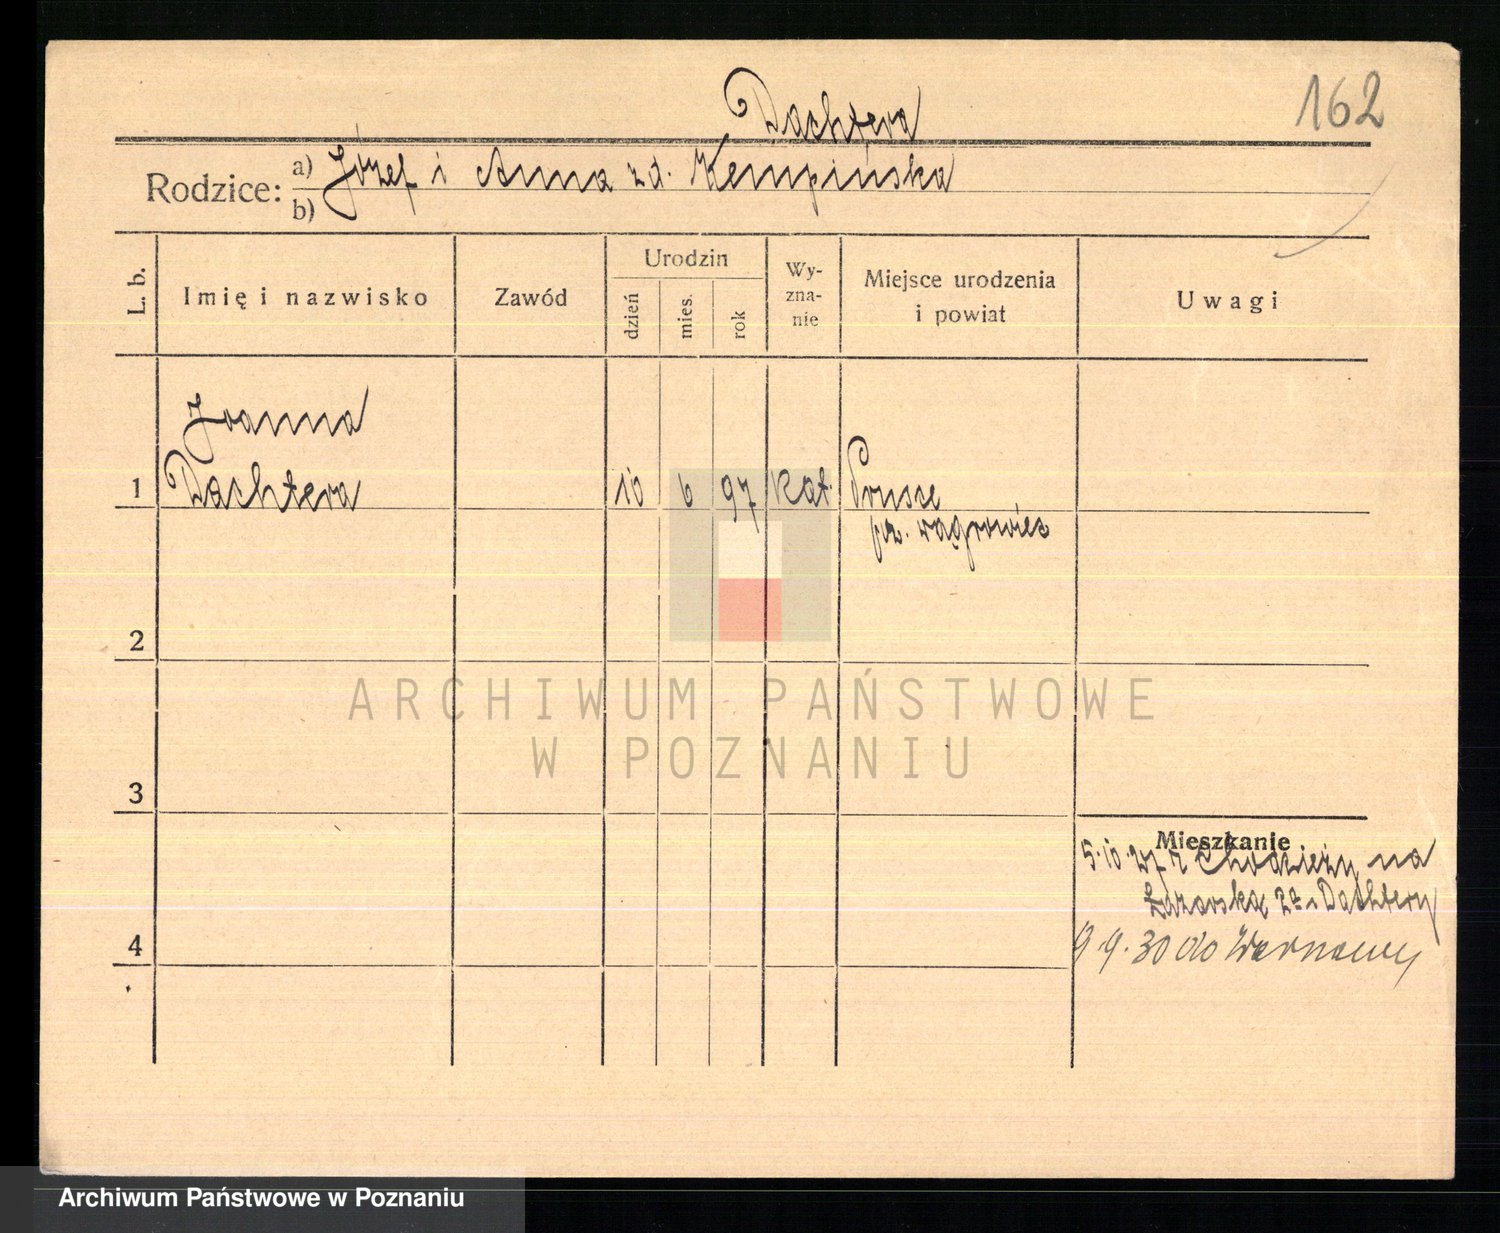 162
Dachtera
Rodzice: a) Józef i Anna zd. Kempińska
b)
L. b.
Imię i nazwisko
Zawód
Urodzin
dzień
mies.
rok
Wy-
zna-
nie
Miejsce urodzenia
i powiat
Uwagi
Joanna
1 Dachtera 10 6 97 kat. Prusce
pow. wągrowiec
2
ARCHIWUM PAŃSTWOWE
W POZNANIU
3
Mieszkanie
5.10.27 z Chodzieży na
Łazarską 2a Dachtery
4
9.9.30 do
Archiwum Państwowe w Poznaniu